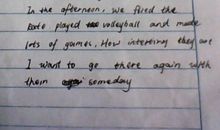 In the afternoon, we flied the
kate played volleyball and made
lots of games. How intersting they are
I want to go there again with
them someday